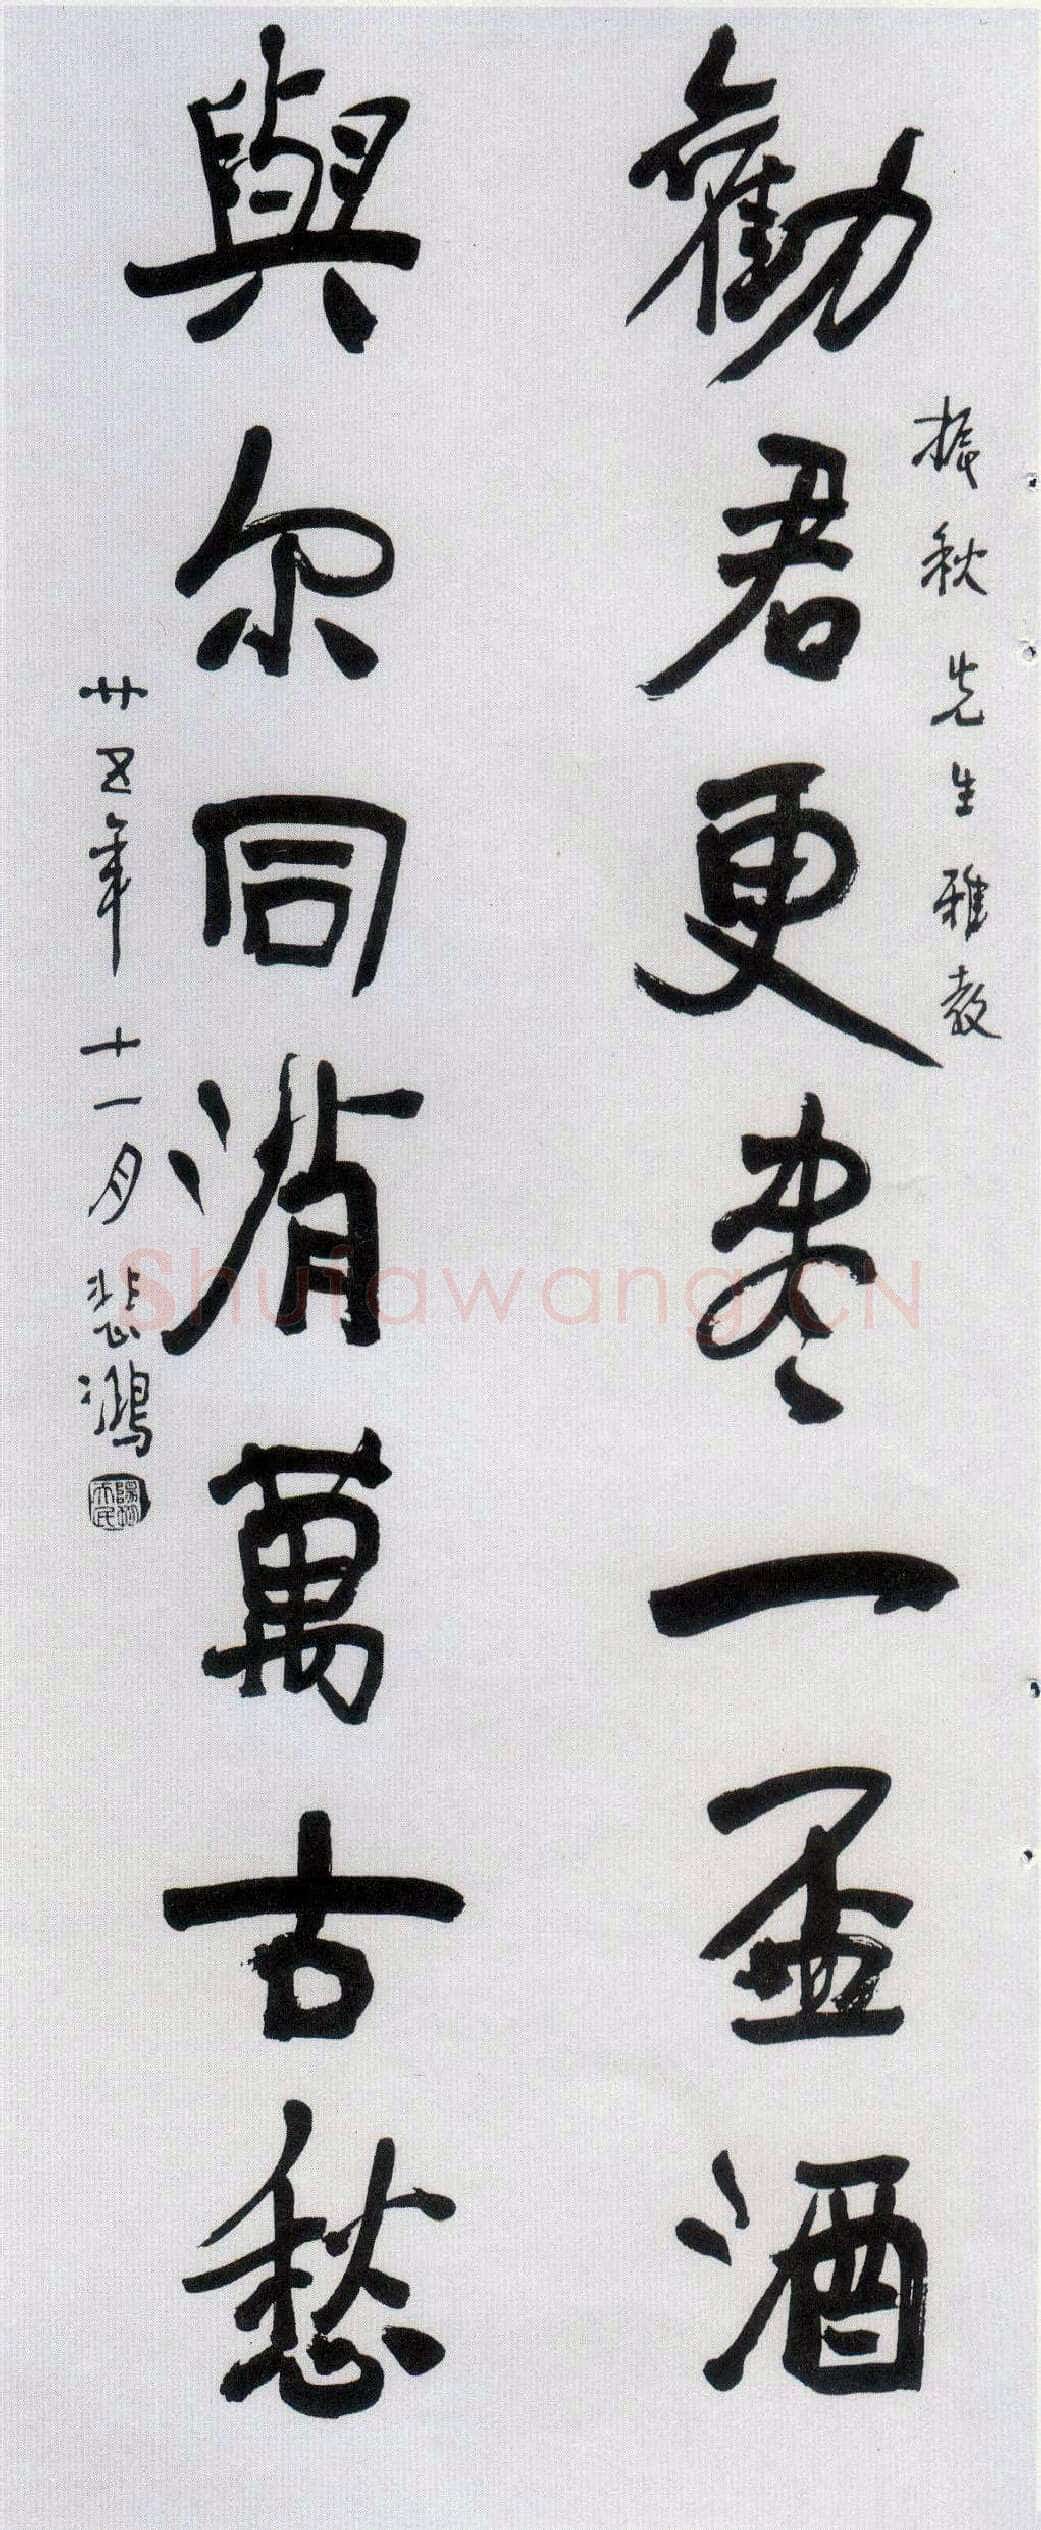 振秋先生雅教
勸君更尽一盃酒
與尔同消萬古愁
廿五年十一月悲鴻
Shufawang.CN